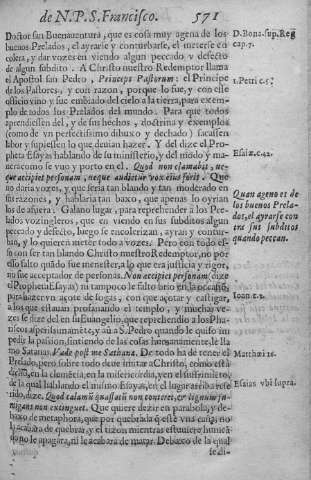 de N.P.S. Francisco. 571
Doctor san Buenauentura, que es cosa muy agena de los
buenos Prelados, el ayrarse y conturbarse, el meterse en co
lera, y dar vozes en viendo algun peccado y defecto
de algun subdito. A Christo nuestro Redemptor llama
el Apostol san Pedro, Princeps Pastorum: el Principe
de los Pastores, y con razon, porque lo fue, y con este
officio vino y fue embiado del cielo a la tierra, para exem-
plo de todos los Prelados del mundo. Para que todos
aprendiessen del, y de sus hechos, doctrina y exemplos
(como de vn perfectissimo dibuxo y dechado) sacassen
labor y supiessen lo que deuian hazer. Y del dize el Pro-
pheta Esayas hablando de su ministerio, y del modo y ma-
nera como se vuo y porto en el. Quod non clamabit, ne-
que accipiet personam, neque audietur vox eius foris. Que
no daria vozes, y que seria tan blando y tan moderado en
sus razones, y hablaria tan baxo, que apenas lo oyrian
los de afuera. Galano lugar, para reprehender a los Pre-
lados vozingleros, que en viendo en sus subditos algun
peccado y defecto, luego se encolerizan, ayran y contur-
ban, y lo quieren meter todo a vozes. Pero con todo es-
so con ser tan blando Christo nuestro Redemptor, no por
esso falto quando fue menester, a lo que era justicia y rigor,
no fue acceptador de personas. Non accipiet personam (dize
el Propheta Esayas) ni tampoco le falto brio en la occasion
para hazer vn açote de sogas, con que açotar y castigar,
a los que estauan profanando el templo, y muchas ve-
zes se dize del en su Euangelio, que reprehendio a los Pha-
riseos asperissimamente, y aũ a S. Pedro quando le quiso im
pedir la passion, sintiendo de las cosas humanamente, le lla
mo Satanas. Vade post me Sathana. De todo ha de tener el
Prelado, pero sobre todo deue imitar a Christo, como está
dicho, en la clemẽcia, en la misericordia, y en el suffrimiẽto,
de la qual hablando el mismo Esayas, en el lugar arriba refe
rido, dize. Quod calamũ quassatũ non conteret, et lignum fu-
migans non extinguet. Que quiere dezir en parabola, y de-
baxo de metaphora, que por quebrada q̃ este vna caña, no
la acabara de quebrar, y el tizon mientras estuuiere humeã
do no le apagara, ni le acabara de matar. Debaxo de la qual
se di-
D. Bona. sup. Reg
cap. 7.
1. Petri c. 5.
Esaiæ. c. 42.
Quan ageno es de
los buenos Prela-
dos, el ayrarse con
tra sus subditos
quando peccan.
Ioan. c. 2.
Matthæi 16.
Esaias vbi supra.